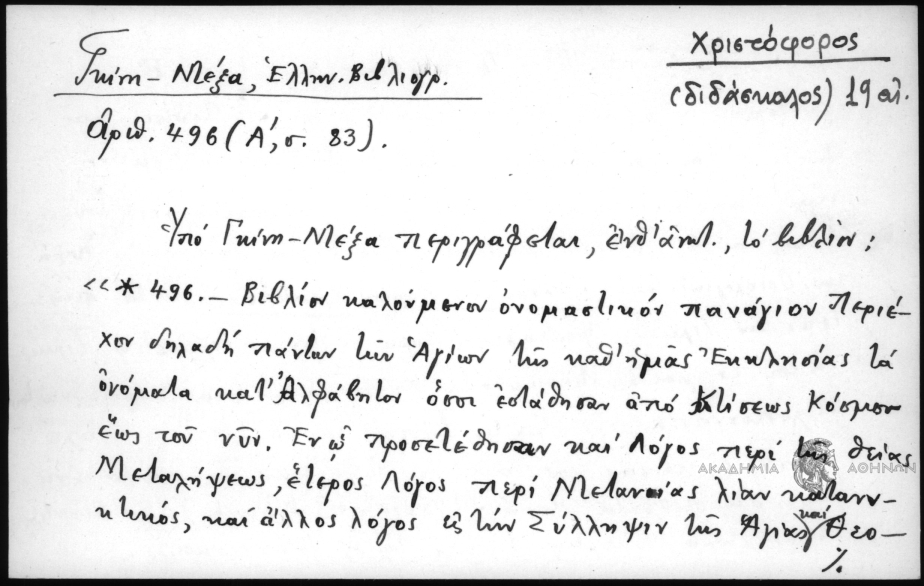 Χριστόφορος
(διδάσκαλος) 19 αἰ.
Γκίνη – Μέξα, Ἑλλην. Βιβλιογρ.
ἀριθ. 496 (Α΄, σ. 83).
Ὑπό Γκίνη – Μέξα περιγράφεται, ἔνθ' ἀνωτ., τό βιβλίον:
«* 496. – Βιβλίον καλούμενον ὀνομαστικόν πανάγιον Περιέ-
χον δηλαδή πάντων τῶν Ἁγίων τῆς καθ' ἡμᾶς Ἐκκλησίας τά
ὀνόματα κατ' Ἀλφάβητον ὅσοι ἐστάθησαν ἀπό κτίσεως Κόσμου
ἕως τοῦ νῦν. Ἐν ᾧ προσετέθησαν καί Λόγος περί τῆς θείας
Μεταλήψεως, ἕτερος Λόγος περί Μετανοίας λίαν κατανυ-
κτικός, καί ἄλλος λόγος εἰς τήν Σύλληψιν τῆς Ἁγίας καί Θεο-
./.
ΑΚΑΔΗΜΙΑ ΑΘΗΝΩΝ